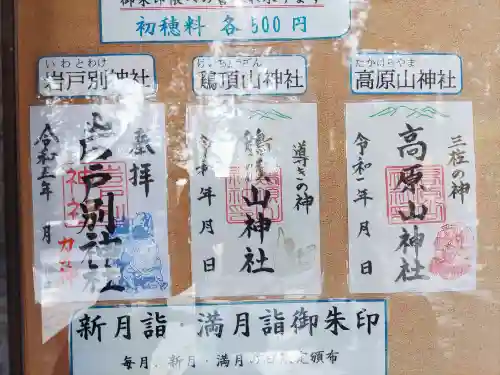 初穂料 各500円
いわとわけ
岩戸別神社
鶏頂山神社
たかはらやま
高原山神社
奉拝
岩戸別神社
令和五年 月
導きの神
鶏頂山神社
令和 年 月 日
三柱の神
高原山神社
令和 年 月 日
新月詣・満月詣御朱印
毎月、新月・満月の日限定頒布